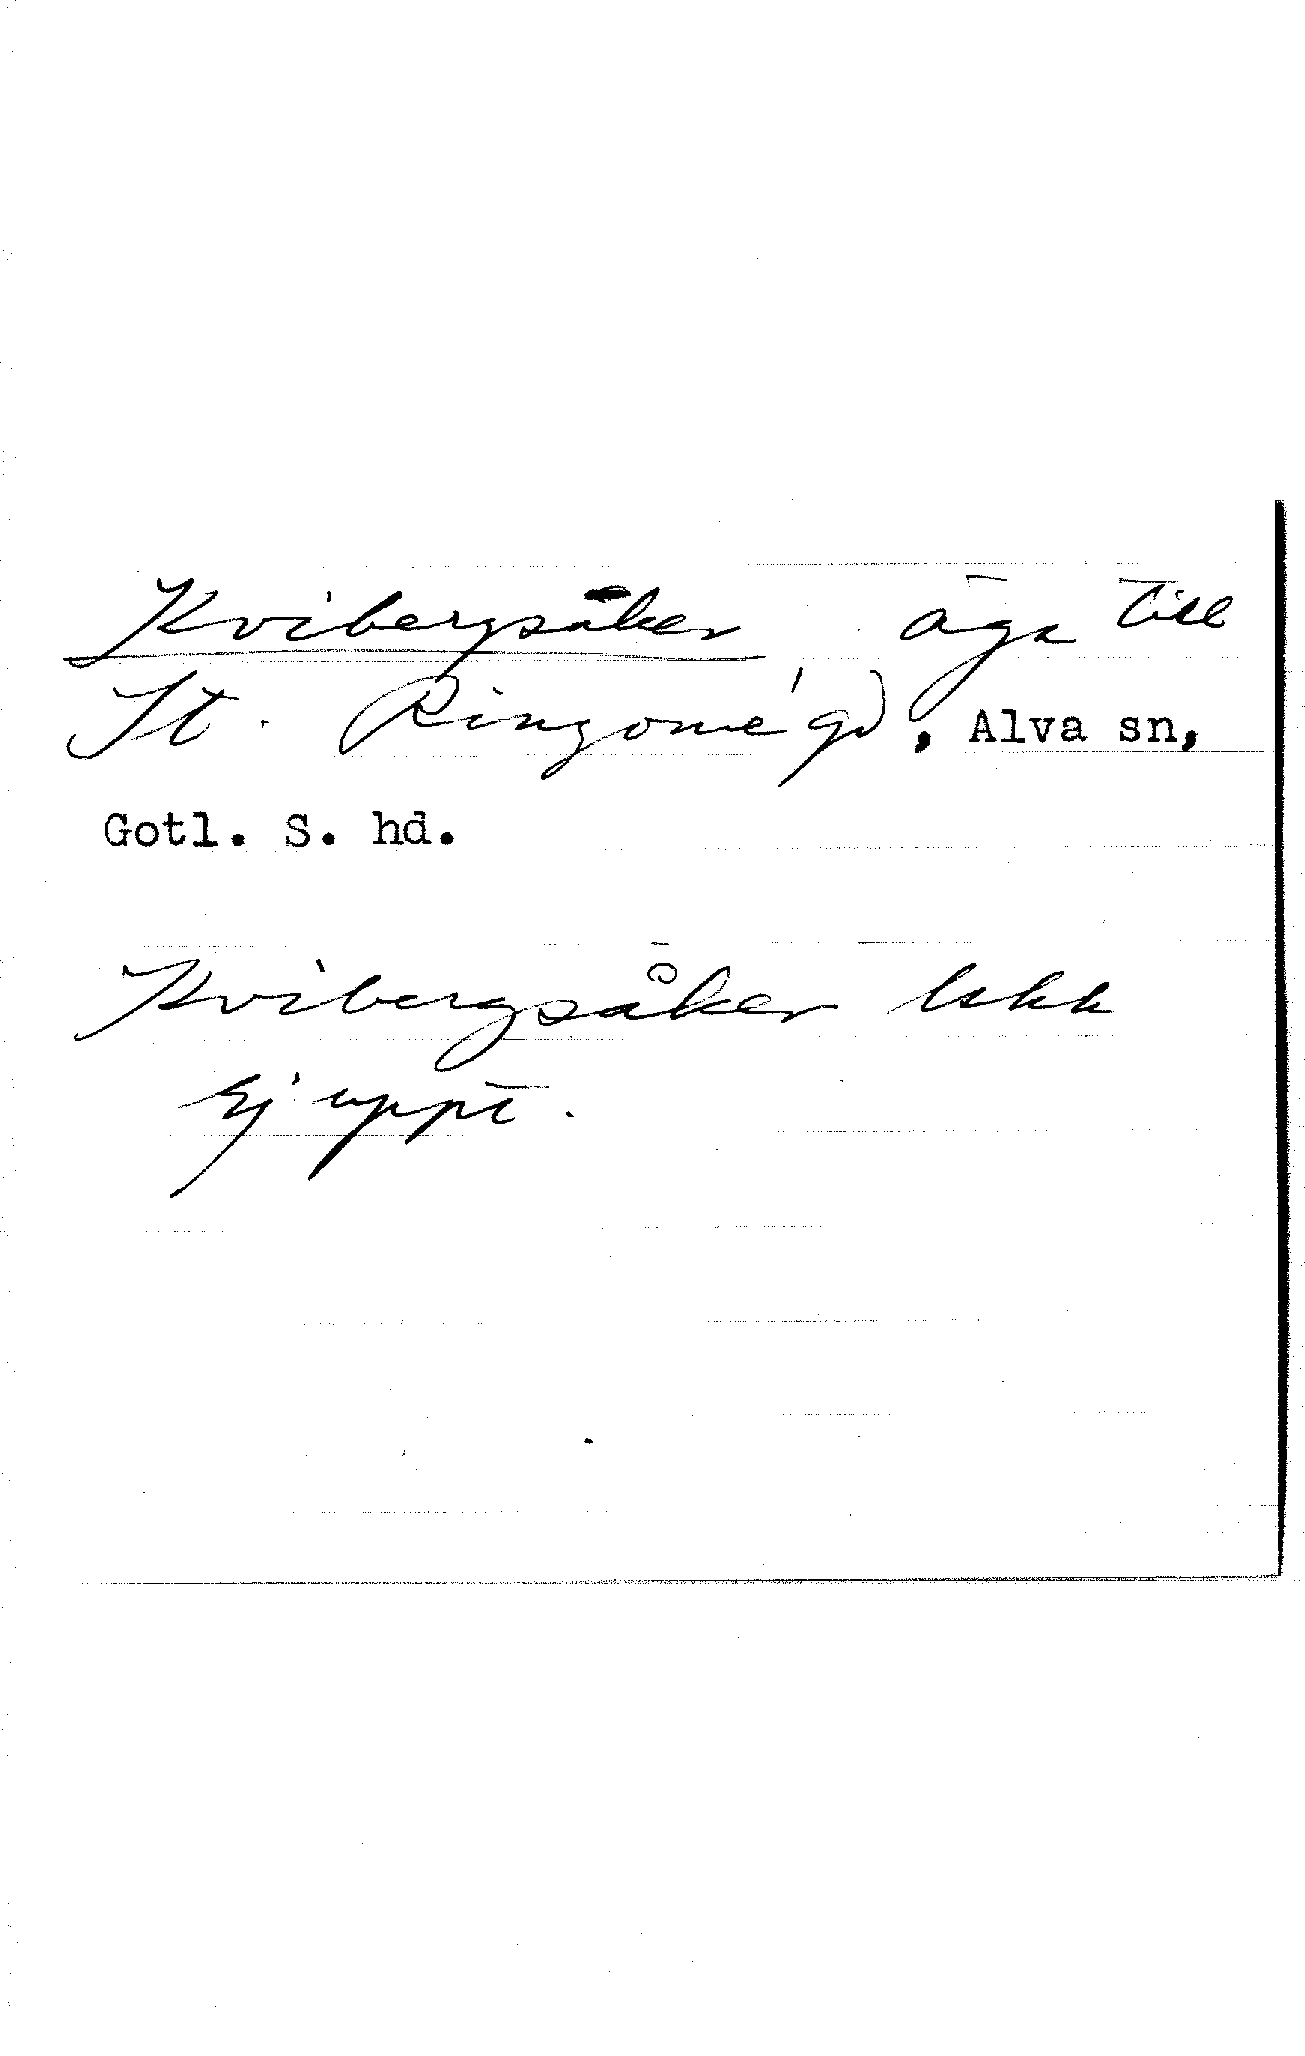 Kvibergsåker äga till
St. Ringome gd, Alva sn,
Gotl. S. hd.
Kvibergsåker
Ej uppt.